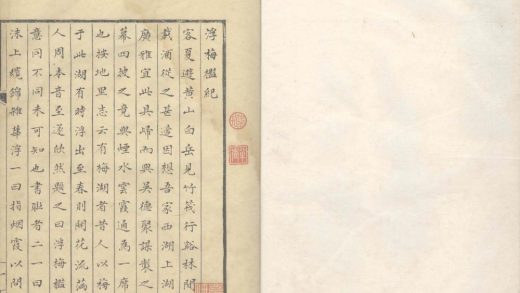 浮梅檻紀
客夏遊黃山白岳見竹筏行谿林間
載酒從之甚適因想吾家西湖上湖
廣雅宜此具歸而與吳德聚謀製之
幕四披之竟與煙水雲霞通為一席
也按地里志云有梅湖者昔人以梅
于此湖有時浮出至春則開花流滿
人周本音至遂欣然題之曰浮梅檻
意同不同未可知也書聯者二一曰
上纜錦雜華浮一曰指烟霞以問